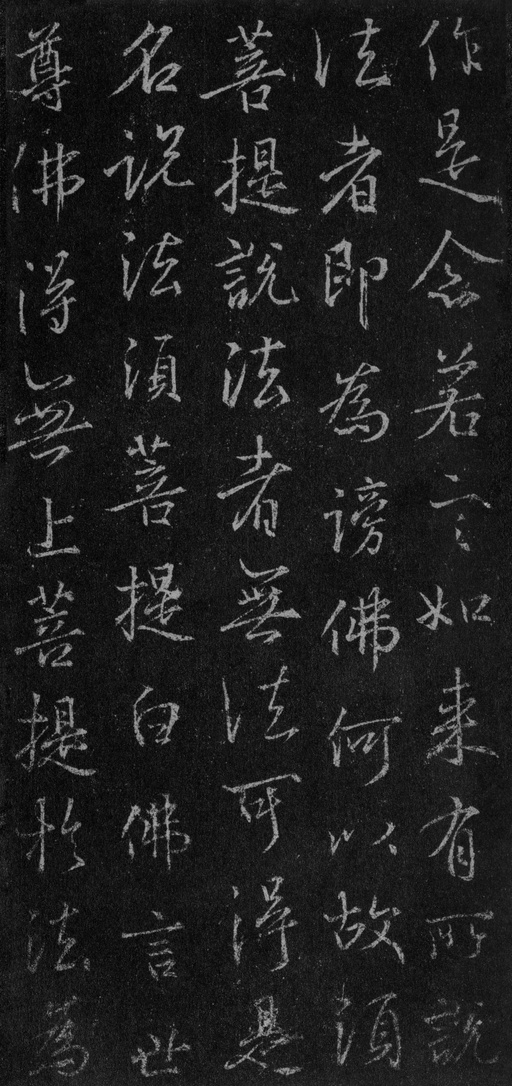 作是念若言如来有所説
法者即為謗佛何以故須
菩提説法者無法可得是
名説法須菩提白佛言世
尊佛得無上菩提於法為